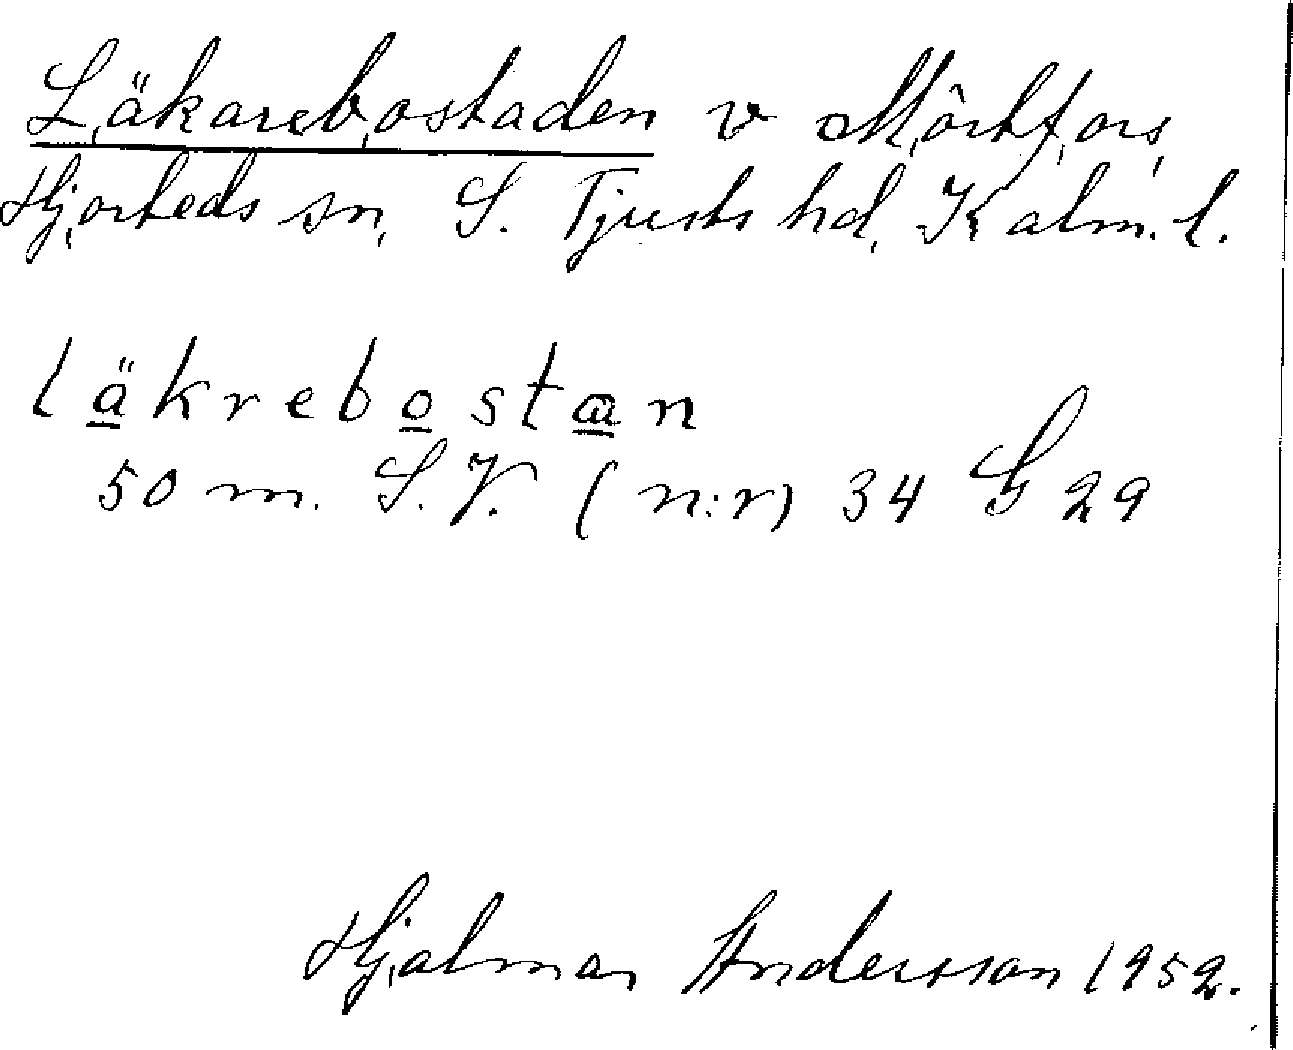 Läkarebostaden v Mörtfors,
Hjorteds sn, S. Tjusts hd, Kalm. l.
läkrebostan
50 m. S.V. (n:r) 34 G 29
Hjalmar Andersson 1952.